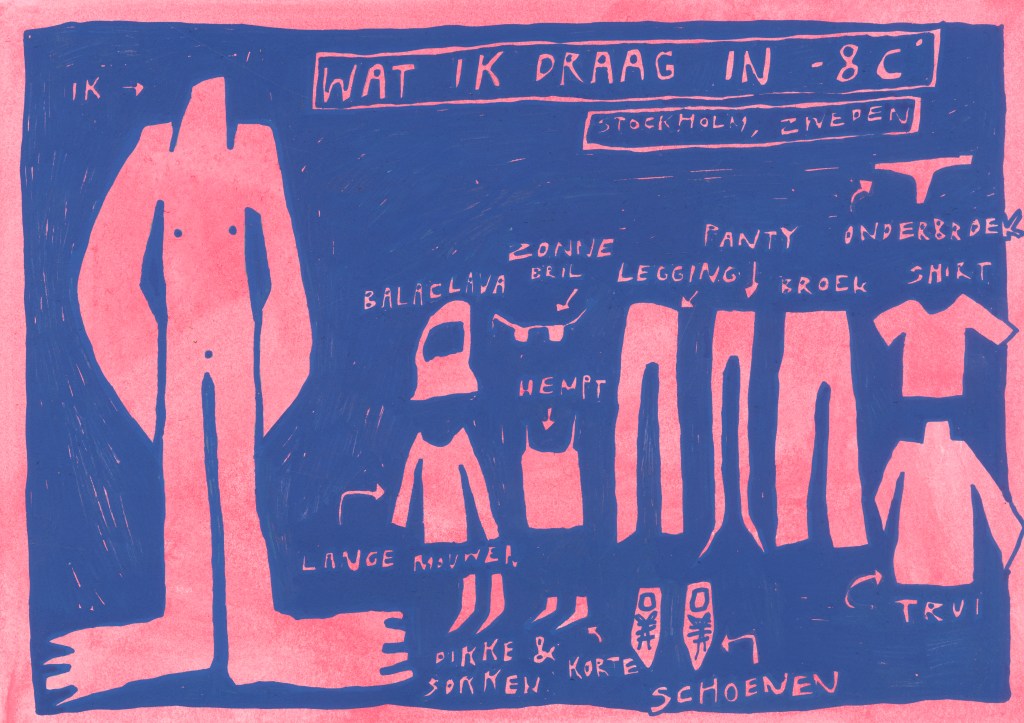 WAT IK DRAAG IN -8 C°
STOCKHOLM, ZWEDEN
IK
ONDERBROEK
PANTY
ZONNE
BRIL
LEGGING
BROEK
SHIRT
BALACLAVA
HEMPT
LANGE MOUWEN
TRUI
DIKKE & KORTE
SOKKEN
SCHOENEN